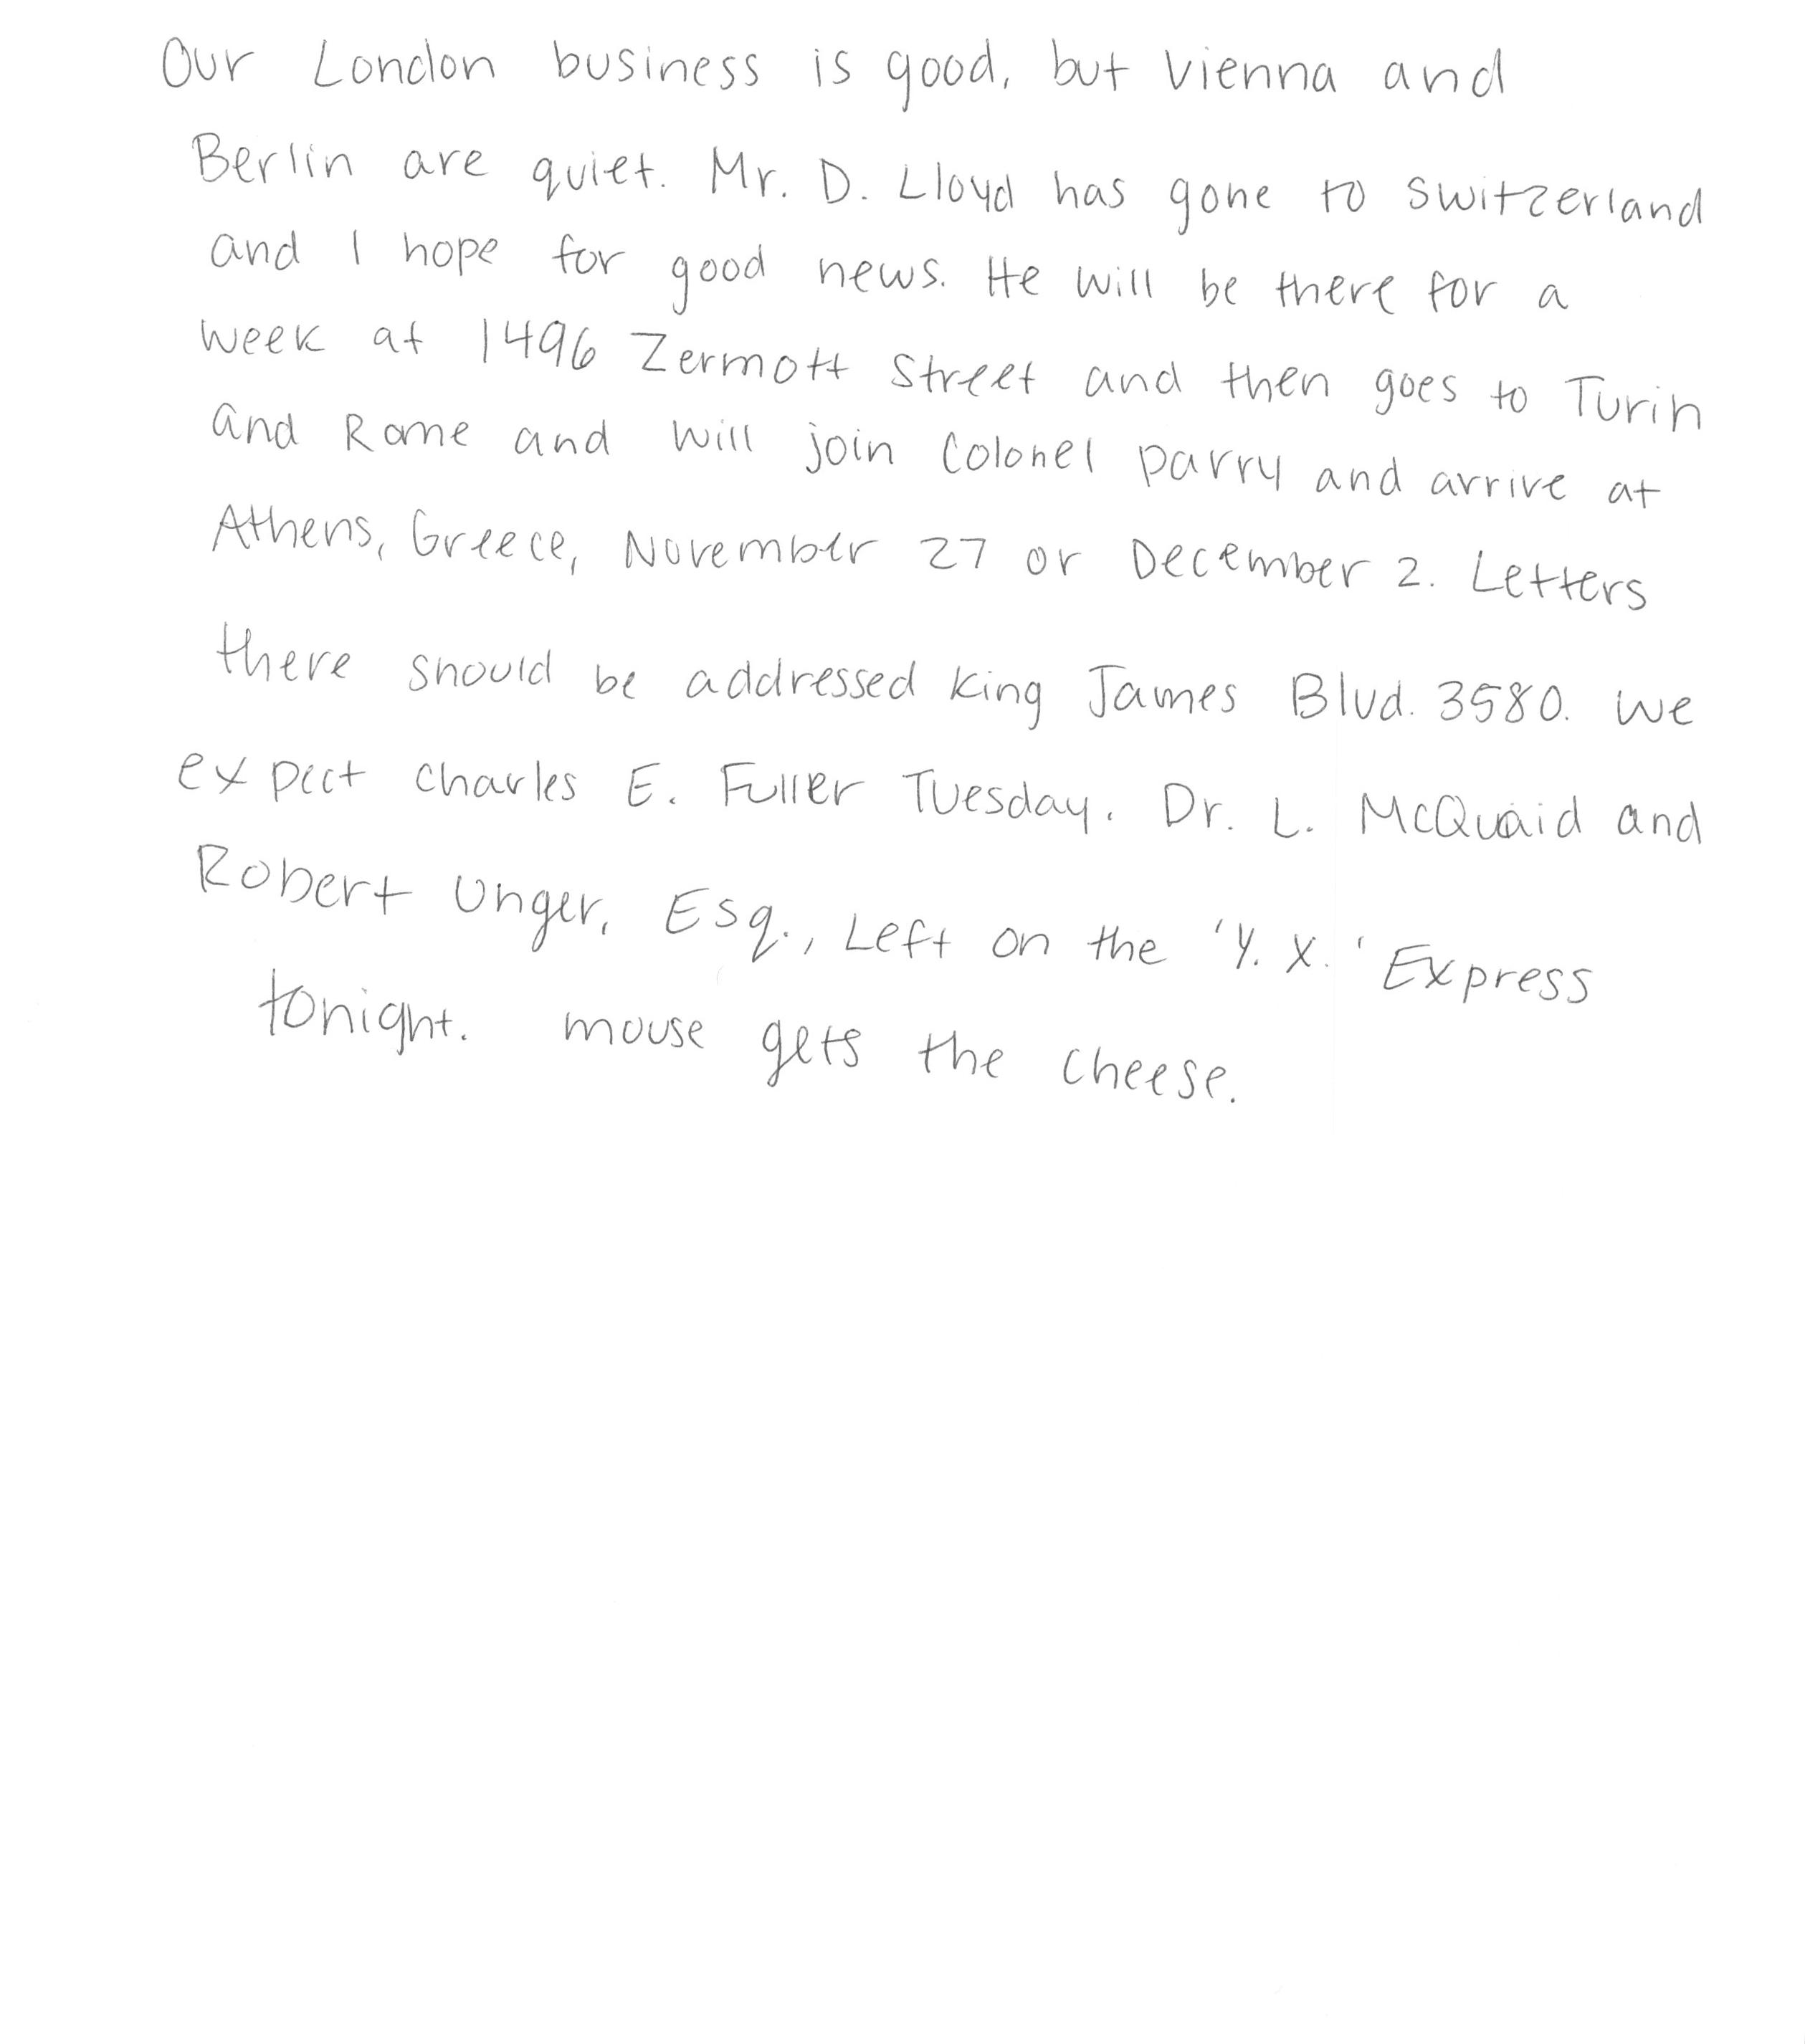 Our London business is good, but Vienna and
Berlin are quiet. Mr. D. Lloyd has gone to Switzerland
and I hope for good news. He will be there for a
week at 1496 Zermott Street and then goes to Turin
and Rome and will join Colonel Parry and arrive at
Athens, Greece, November 27 or December 2. Letters
there should be addressed King James Blvd. 3580. We
expect Charles E. Fuller Tuesday. Dr. L. McQuaid and
Robert Unger, Esq., Left on the 'Y. X.' Express
tonight. mouse gets the cheese.